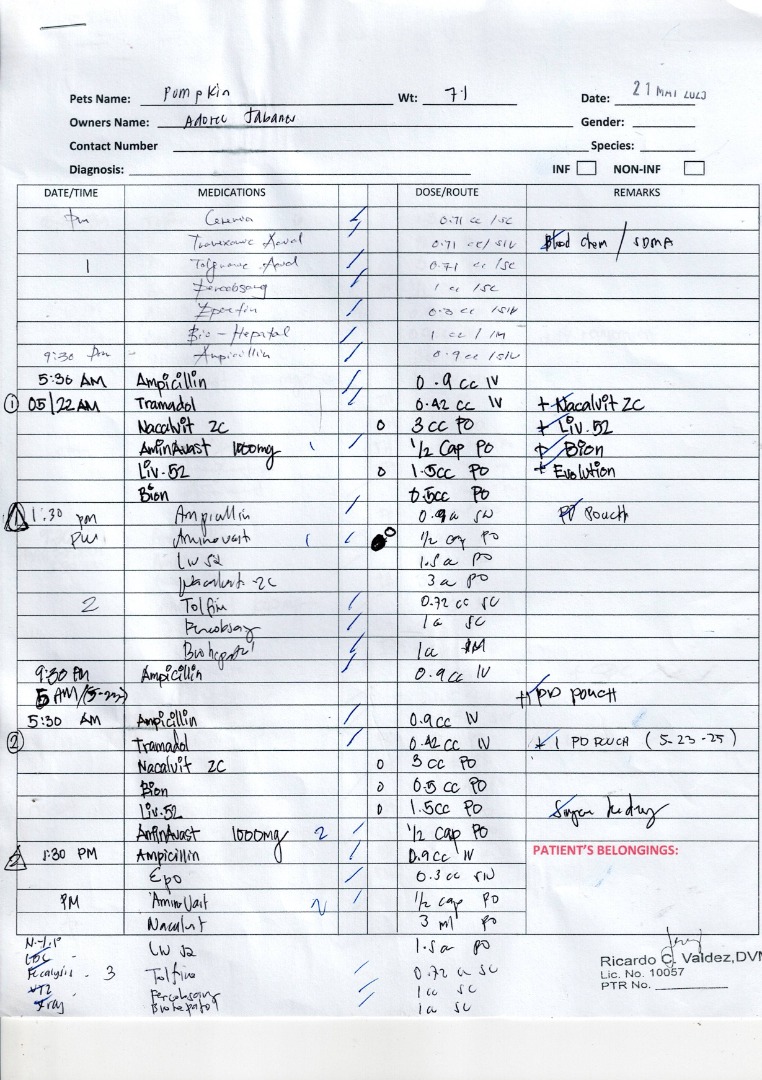 Pets Name: Pumpkin Wt: 7.1 Date: 21 MAY 2025
Owners Name: Gender:
Contact Number Species:
Diagnosis: INF NON-INF
DATE/TIME MEDICATIONS DOSE/ROUTE REMARKS
pm Cerenia 0.71 cc /SC
0.71 cc/ SIV Blood chem / SDMA
1 0.71 cc /SC
1 cc /SC
0.3 cc /SIV
Bio-Hepatol 1 cc / IM
9:30 pm - Ampicillin 0.9 cc /SIV
5:30 AM Ampicillin 0.9 cc IV
1 05/22 AM Tramadol 0.42 cc IV + Nacalvit ZC
Nacalvit ZC 0 3 cc PO + Liv.52
AminAvast 1000mg 1 1/2 Cap PO + Bion
Liv.52 0 1.5cc PO + Evolution
Bion 0.5cc PO
1 1:30 pm Ampicillin 0.9 a SIV PD POUCH
PM Aminovast 1 1/2 cap PO
Liv 52 1.5 a PO
Nacalvit ZC 3 a PO
2 Tolfin 0.72 cc SC
Fercobsang 1 a SC
Biohepatol 1 a IM
9:30 PM Ampicillin 0.9 cc IV
5 AM (5-23) PD POUCH
5:30 AM Ampicillin 0.9 cc IV
2 Tramadol 0.42 cc IV + 1 PD POUCH (5-23-25)
Nacalvit ZC 0 3 cc PO
Bion 0 0.5 cc PO
Liv.52 0 1.5cc PO
AminAvast 1000mg 2 1/2 cap PO
2 1:30 PM Ampicillin 0.9cc IV PATIENT'S BELONGINGS:
Epo 0.3 cc SIV
PM AminoVast 2 1/2 cap PO
Nacalvit 3 ml PO
Liv 52 1.5 a PO
CBC
Fecalysis - 3 Tolfine 0.72 a SC
UTZ Fercobsang 1 cc SC
Xray Biohepatol 1 a SC
Ricardo C. Valdez, DVM
Lic. No. 10057
PTR No.